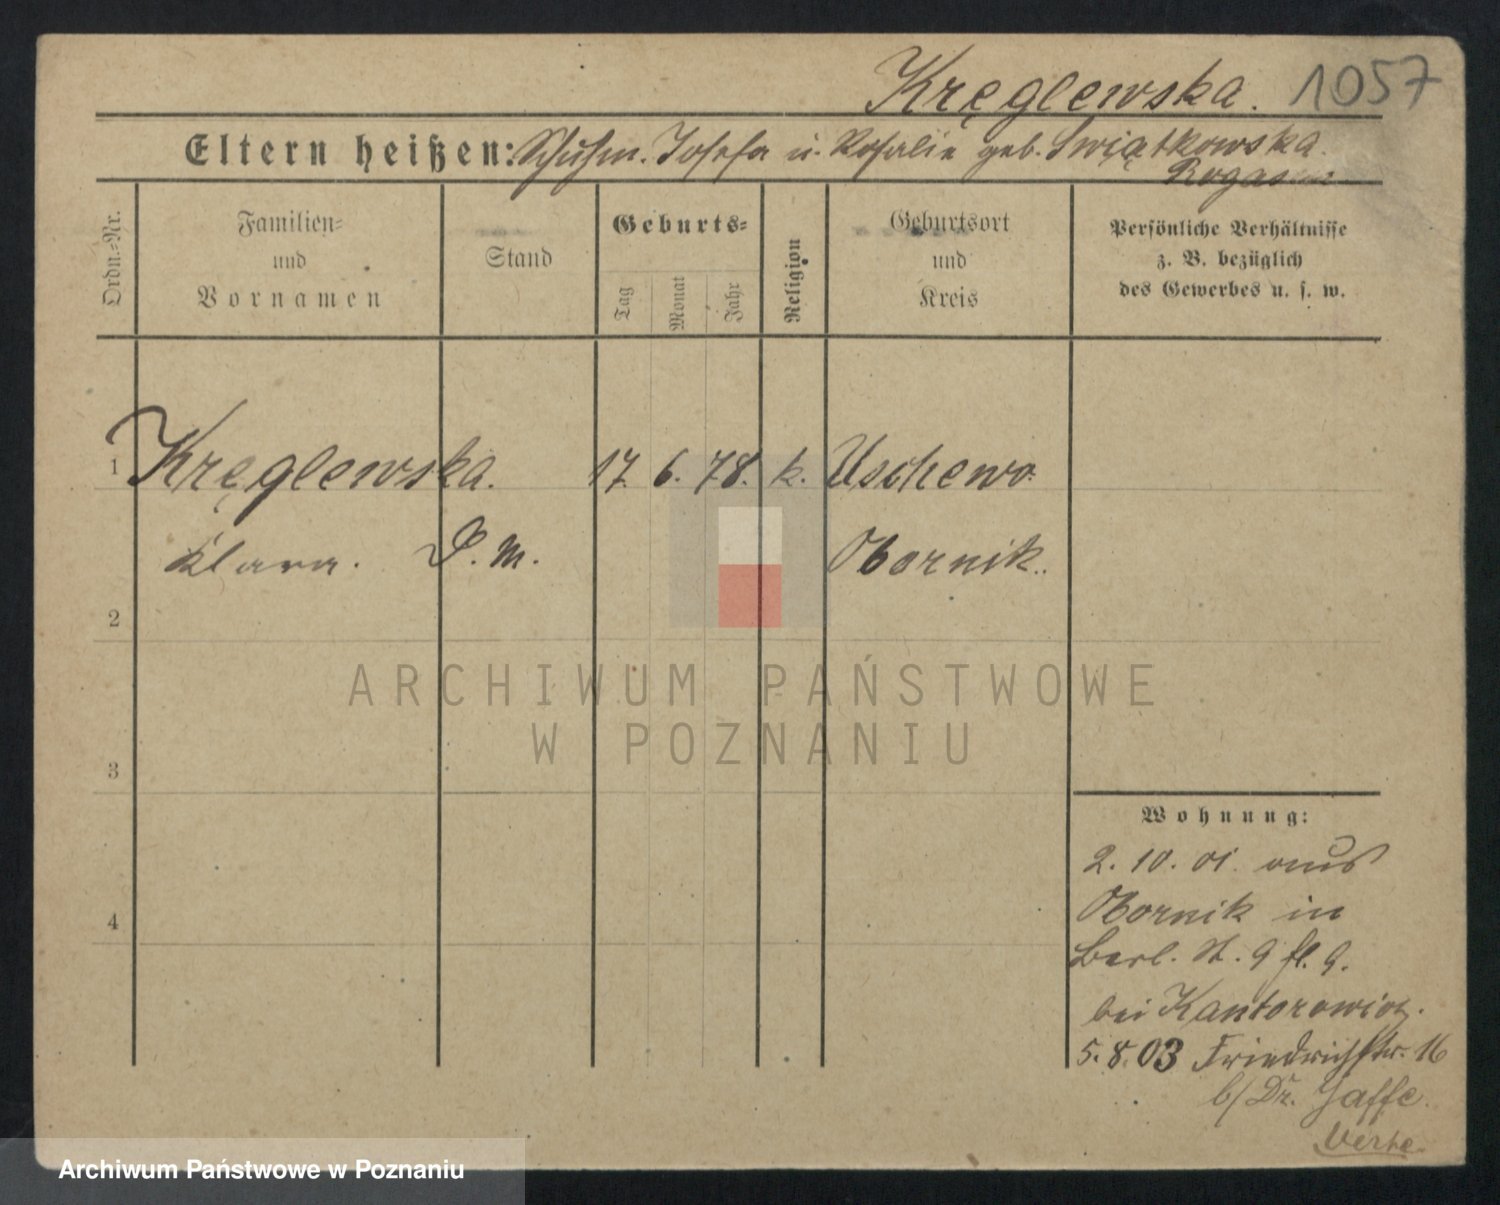 Kręglewska. 1057
Eltern heißen: Schuhm. Josefa u. Rosalie geb. Swiątkowska.
Rogasen
Ordn.=Nr.
Familien=
und
Vornamen
Stand
Geburts=
Tag
Monat
Jahr
Religion
Geburtsort
und
Kreis
Persönliche Verhältnisse
z. B. bezüglich
des Gewerbes u. s. w.
1 Kręglewska. 17. 6. 78. k. Uschewo.
Klara. D. M. Obornik.
2
ARCHIWUM PAŃSTWOWE
W POZNANIU
3
Wohnung:
2. 10. 01. aus
Obornik in
4
Berl. St. 9 fl. 9.
bei Kantorowicz.
5. 8. 03 Friedrichstr. 16
b/ Dr. Jaffe.
Archiwum Państwowe w Poznaniu